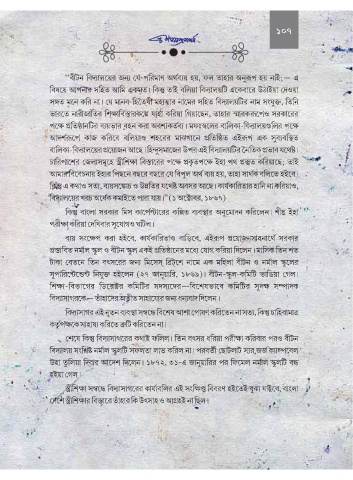 ১০৭
"বীটন বিদ্যালয়ের জন্য যে-পরিমাণ অর্থব্যয় হয়, ফল তাহার অনুরূপ হয় নাই;— এ
বিষয়ে আপনার সহিত আমি একমত। কিন্তু তাই বলিয়া বিদ্যালয়টি একেবারে উঠাইয়া দেওয়া
সঙ্গত মনে করি না। যে মানব-হিতৈষী মহাত্মার নামের সহিত বিদ্যালয়টির নাম সংযুক্ত, তিনি
ভারতে নারীজাতির শিক্ষাবিস্তারকল্পে যাহা করিয়া গিয়াছেন, তাহার স্মারকরূপেও সরকারের
পক্ষে প্রতিষ্ঠানটির ব্যয়ভার বহন করা অবশ্যকর্তব্য। মফঃস্বলের বালিকা-বিদ্যালয়গুলির পক্ষে
আদর্শরূপে কাজ করিবে বলিয়াও শহরের মাঝখানে প্রতিষ্ঠিত এইরূপ এক সুব্যবস্থিত
বালিকা-বিদ্যালয়ের প্রয়োজন আছে। হিন্দুসমাজের উপর এই বিদ্যালয়টির নৈতিক প্রভাব যথেষ্ট।
চারিপাশের জেলাসমূহে স্ত্রীশিক্ষা বিস্তারের পক্ষে প্রকৃতপক্ষে ইহা পথ প্রস্তুত করিয়াছে; তাই
আমার বিবেচনায় ইহার পিছনে বছরে বছরে যে বিপুল অর্থ ব্যয় হয়, তাহা সার্থক বলিতে হইবে।
কিন্তু এ কথাও সত্য, ব্যয়সঙ্কোচ ও উন্নতির যথেষ্ট অবসর আছে। কার্যকারিতার হানি না করিয়াও,
বিদ্যালয়ের খরচ অর্ধেক কমাইতে পারা যায়।" (১ অক্টোবর, ১৮৬৭)
কিন্তু বাংলা সরকার মিস কার্পেন্টারের কল্পিত ব্যবস্থার অনুমোদন করিলেন। শীঘ্র ইহা
পরীক্ষা করিয়া দেখিবার সুযোগও ঘটিল।
ব্যয় সংক্ষেপ করা হইবে, কার্যকারিতাও বাড়িবে, এইরূপ প্রয়োজনসাধনার্থে সরকার
প্রস্তাবিত নর্মাল স্কুল ও বীটন স্কুল একই প্রতিষ্ঠানের মধ্যে যোগ করিয়া দিলেন। মাসিক তিন শত
টাকা বেতনে তিন বৎসরের জন্য মিসেস্ ব্রিটশে নামে এক মহিলা বীটন ও নর্মাল স্কুলের
সুপারিন্টেন্ডেন্ট নিযুক্ত হইলেন (২৭ জানুয়ারি, ১৮৬৯)। বীটন-স্কুল-কমিটি ভাঙিয়া গেল।
শিক্ষা-বিভাগের ডিরেক্টর কমিটির সদস্যদের—বিশেষভাবে কমিটির সুদক্ষ সম্পাদক
বিদ্যাসাগরকে— তাঁহাদের অতীত সাহায্যের জন্য ধন্যবাদ দিলেন।
বিদ্যাসাগর এই নূতন ব্যবস্থা সম্বন্ধে বিশেষ আশা পোষণ করিতেন না সত্য, কিন্তু চাহিবামাত্র
কর্তৃপক্ষকে সাহায্য করিতে ত্রুটি করিতেন না।
শেষে কিন্তু বিদ্যাসাগরের কথাই ফলিল। তিন বৎসর ধরিয়া পরীক্ষা করিবার পরও বীটন
বিদ্যালয় সংশ্লিষ্ট নর্মাল স্কুলটি সফলতা লাভ করিল না। পরবর্তী ছোটলাট স্যর জর্জ ক্যাম্পবেল
উহা তুলিয়া দিবার আদেশ দিলেন। ১৮৭২, ৩১-এ জানুয়ারির পর ফিমেল নর্মাল স্কুলটি বন্ধ
হইয়া গেল।
স্ত্রীশিক্ষা সম্বন্ধে বিদ্যাসাগরের কার্যাবলির এই সংক্ষিপ্ত বিবরণ হইতেই বুঝা যাইবে, বাংলা
দেশে স্ত্রীশিক্ষার বিস্তারে তাঁহার কি উৎসাহ ও আগ্রহই না ছিল।